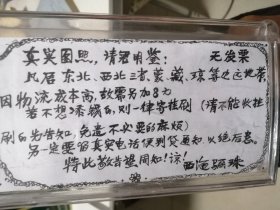 真实图照,请君明鉴: 无发票
凡居东北、西北三省、蒙、藏、琼等边地带
因物流成本高,故需另加8元
若不想添麻烦,则一律寄挂刷 (请不能收挂
刷的先告知,免造不必要的麻烦)
另一定要留真实电话便利货通知,以绝后患。
特此敬告望周知!谅!